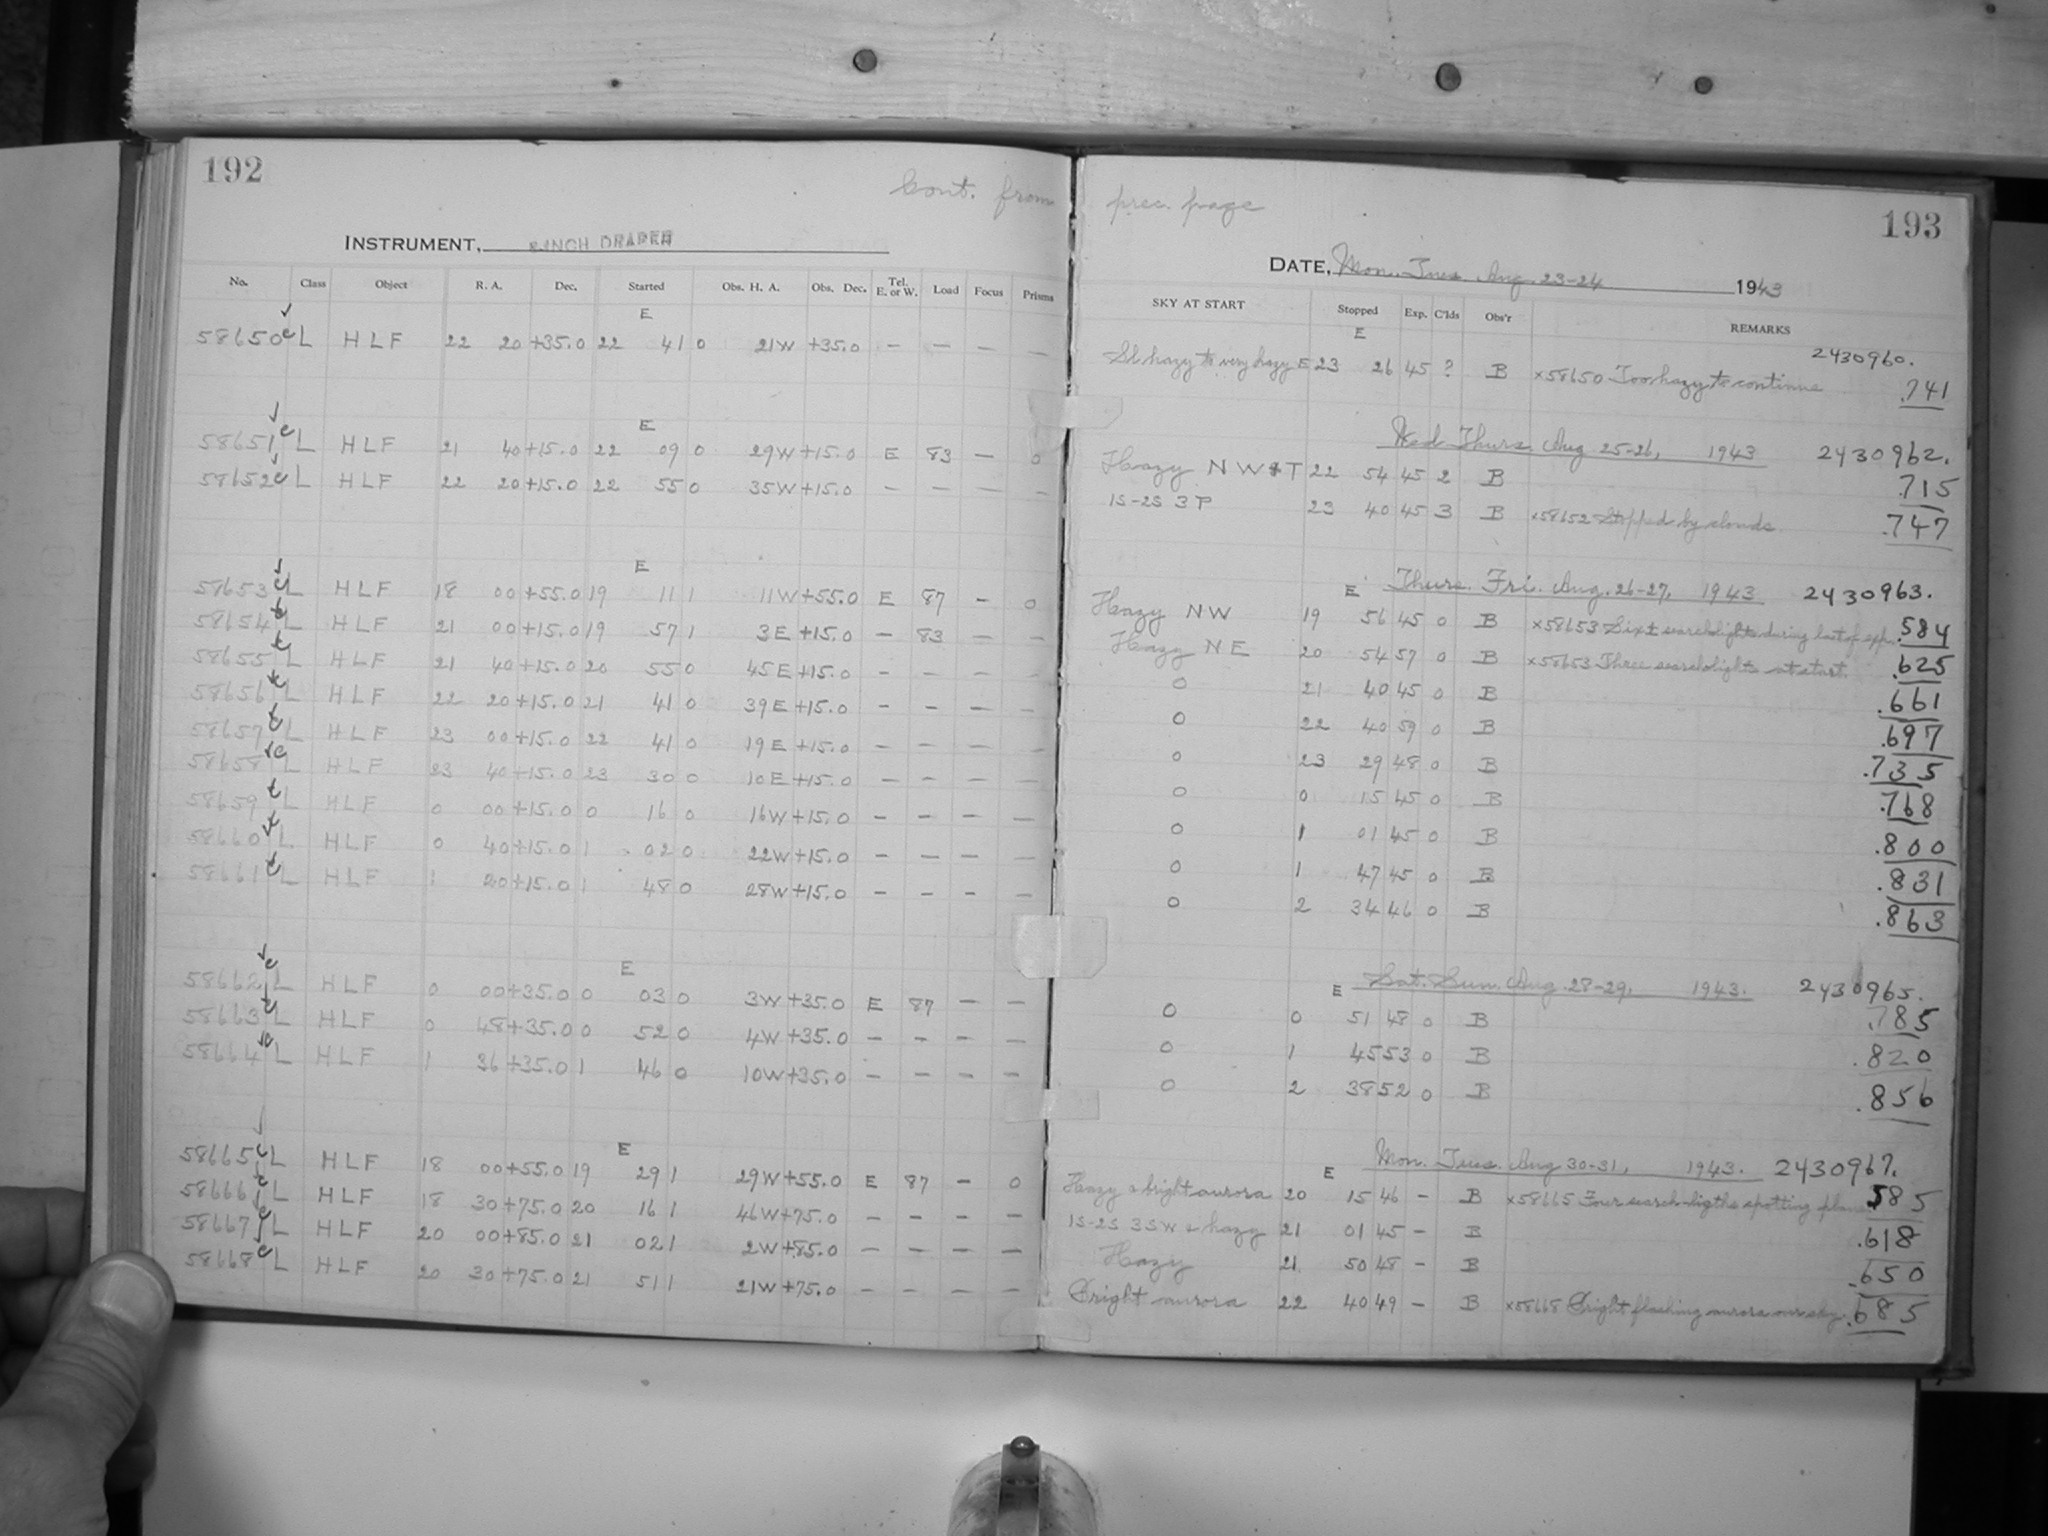 192
Cont. from prec. page
193
INSTRUMENT, 8 INCH DRAPER
DATE, Mon. Tues. Aug. 23-24 1943
No. Class Object R. A. Dec. Started Obs. H. A. Obs. Dec. Tel. E. or W. Load Focus Prisms SKY AT START Stopped Exp. C'lds Obs'r REMARKS
E E 2430960.
58650 c L HLF 22 20 +35.0 22 41 0 21W +35.0 — — — — Sl hazy to very hazy E 23 26 45 ? B ×58650 Too hazy to continue .741
E Wed. Thurs. Aug 25-26, 1943 2430962.
58651 c L HLF 21 40 +15.0 22 09 0 29W +15.0 E 83 — 0 Hazy NW+T 22 54 45 2 B .715
58652 c L HLF 22 20 +15.0 22 55 0 35W +15.0 — — — — 1S-2S 3P 23 40 45 3 B ×58652 Stopped by clouds .747
E E Thurs. Fri. Aug. 26-27, 1943 2430963.
58653 c L HLF 18 00 +55.0 19 11 1 11W +55.0 E 87 — 0 Hazy NW 19 56 45 0 B ×58653 Six± searchlights during last of exp. .584
58654 L HLF 21 00 +15.0 19 57 1 3E +15.0 — 83 — — Hazy NE 20 54 57 0 B ×58653 Three searchlights at start. .625
58655 L HLF 21 40 +15.0 20 55 0 45E +15.0 — — — — 0 21 40 45 0 B .661
58656 L HLF 22 20 +15.0 21 41 0 39E +15.0 — — — — 0 22 40 59 0 B .697
58657 L HLF 23 00 +15.0 22 41 0 19E +15.0 — — — — 0 23 29 48 0 B .735
58658 c L HLF 23 40 +15.0 23 30 0 10E +15.0 — — — — 0 0 15 45 0 B .768
58659 L HLF 0 00 +15.0 0 16 0 16W +15.0 — — — — 0 1 01 45 0 B .800
58660 L HLF 0 40 +15.0 1 02 0 22W +15.0 — — — — 0 1 47 45 0 B .831
58661 L HLF 1 20 +15.0 1 48 0 28W +15.0 — — — — 0 2 34 46 0 B .863
E E Sat. Sun. Aug. 28-29, 1943. 2430965.
58662 c L HLF 0 00 +35.0 0 03 0 3W +35.0 E 87 — — 0 0 51 48 0 B .785
58663 c L HLF 0 48 +35.0 0 52 0 4W +35.0 — — — — 0 1 45 53 0 B .820
58664 c L HLF 1 36 +35.0 1 46 0 10W +35.0 — — — — 0 2 38 52 0 B .856
E E Mon. Tues. Aug 30-31, 1943. 2430967.
58665 c L HLF 18 00 +55.0 19 29 1 29W +55.0 E 87 — 0 Hazy & bright aurora 20 15 46 — B ×58665 Four search-ligths spotting plane .585
58666 c L HLF 18 30 +75.0 20 16 1 46W +75.0 — — — — 1S-2S 3SW & hazy 21 01 45 — B .618
58667 c L HLF 20 00 +85.0 21 02 1 2W +85.0 — — — — Hazy 21 50 48 — B .650
58668 c L HLF 20 30 +75.0 21 51 1 21W +75.0 — — — — Bright aurora 22 40 49 — B ×58668 Bright flashing aurora over sky. .685